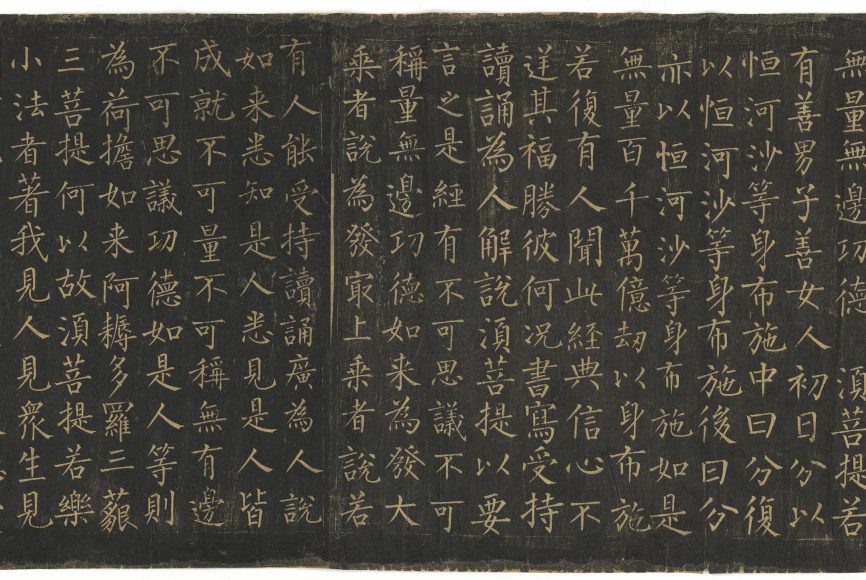 無量無邊功德　湏菩提若
有善男子善女人初日分以
恒河沙等身布施中日分復
以恒河沙等身布施後日分
亦以恒河沙等身布施如是
無量百千萬億劫以身布施
若復有人聞此經典信心不
逆其福勝彼何况書寫受持
讀誦為人解說湏菩提以要
言之是經有不可思議不可
稱量無邊功德如来為發大
乘者說為發冣上乘者說若
有人能受持讀誦廣為人說
如来悉知是人悉見是人皆
成就不可量不可稱無有邊
不可思議功德如是人等則
為荷擔如来阿耨多羅三藐
三菩提何以故湏菩提若樂
小法者著我見人見衆生見